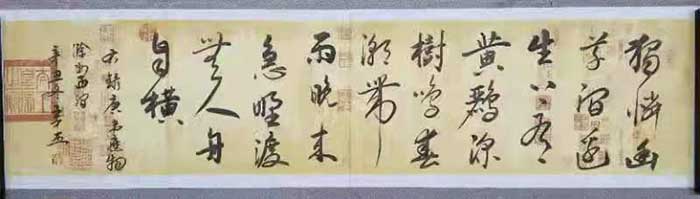 獨憐幽
草澗邊
生上有
黄鸝深
樹鳴春
潮帶
雨晚来
急野渡
無人舟
自横
右録唐韋應物
滁州西澗
辛丑